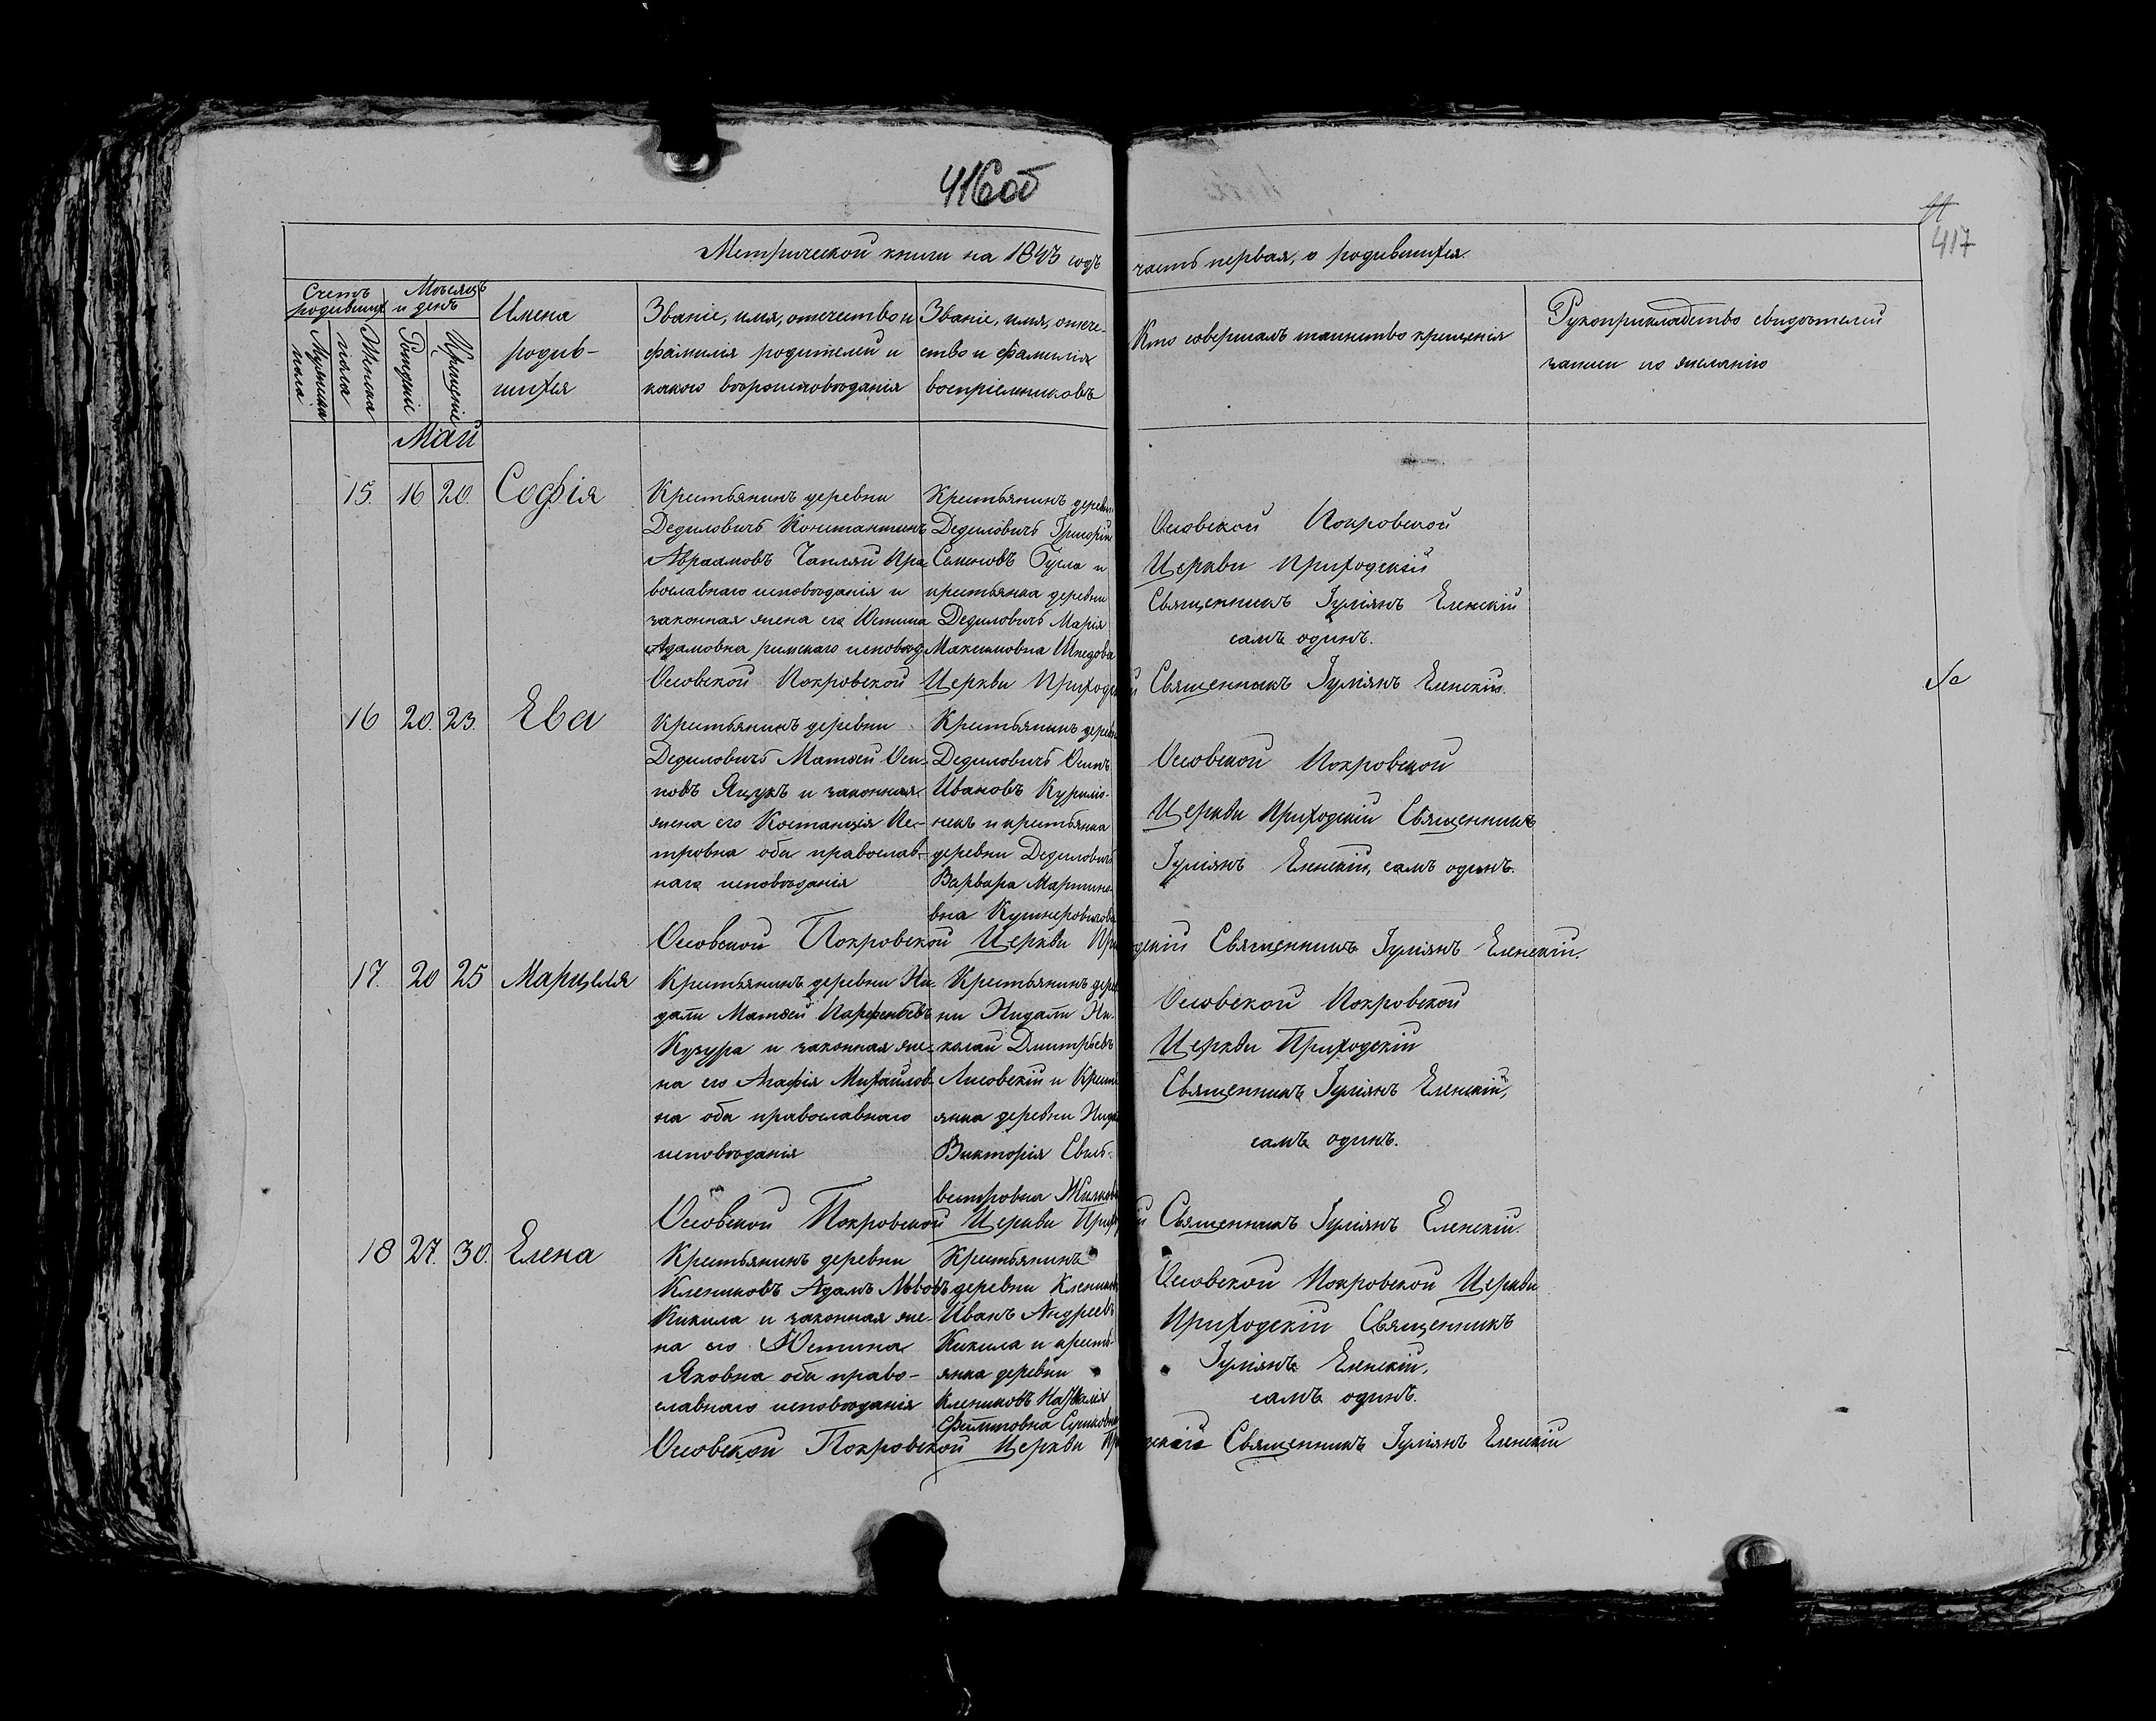 416об
417
Метрической книги на 1843 годъ часть первая, о родившихся.
Счетъ родившихся
Мужеска пола
Женска пола
Месяцъ и день
Рожденіе
Крещеніе
Имена
родив-
шихся
Званіе, имя, отчество и
фамилія родителей и
какого вѣроисповѣданія
Званіе, имя, отече-
ство и фамилія
воспріемниковъ
Кто совершалъ таинство крещенія
Рукоприкладство свидѣтелей
записи по желанію
Май
15. 16 20. Софія
Крестьянинъ деревни
Дедиловичъ Константинъ
Авраамовъ Чапляй Пра
вославнаго исповѣданія и
законная жена его Юстина
Адамовна римскаго исповѣд
Крестьянинъ деревни
Дедиловичъ Григорій
Семеновъ Гусла и
крестьянка деревни
Дедиловичъ Марія
Максимовна Шпедова
Осовской Покровской
Церкви Приходскій
Священникъ Іуліянъ Еленскій
самъ одинъ.
Осовской Покровской Церкви Приходскій Священникъ Іуліянъ Еленскій.
16 20. 23. Ева
Крестьянинъ деревни
Дедиловичъ Матѳей Оси-
повъ Яцукъ и законная
жена его Костанція Пе-
тровна оба православ-
наго исповѣданія
Крестьянинъ деревни
Дедиловичъ Осипъ
Ивановъ Курило-
некъ и крестьянка
деревни Дедиловичъ
Варвара Мартино-
вна Кушнеровичова
Осовской Покровской
Церкви Приходскій Священникъ
Іуліянъ Еленскій, самъ одинъ.
Осовской Покровской Церкви Приходскій Священникъ Іуліянъ Еленскій.
17. 20 25 Марцеля
Крестьянинъ деревни Жи-
дали Матѳей Парфеньевъ
Кузура и законная же-
на его Агафія Михайлов-
на оба православнаго
исповѣданія
Крестьянинъ дерев
ни Жидали Ни-
колай Дмитрьевъ
Лисовскій и Крест
янка деревни
Викторія Сяль-
вестровна
Осовской Покровской
Церкви Приходскій
Священникъ Іуліянъ Еленскій,
самъ одинъ.
Осовской Покровской Церкви Приходскій Священникъ Іуліянъ Еленскій.
18 27. 30. Елена
Крестьянинъ деревни
Клениковъ Адамъ Львовъ
Кикила и законная же-
на его Юстина
Яковна оба право-
славнаго исповѣданія
Крестьянинъ
деревни Клениковъ
Иванъ Андреевъ
Кикила и кресть-
янка деревни
Клениковъ Наталія
Филиповна Сучкова
Осовской Покровской Церкви
Приходскій Священникъ
Іуліянъ Еленскій,
самъ одинъ.
Осовской Покровской Церкви Приходскій Священникъ Іуліянъ Еленскій